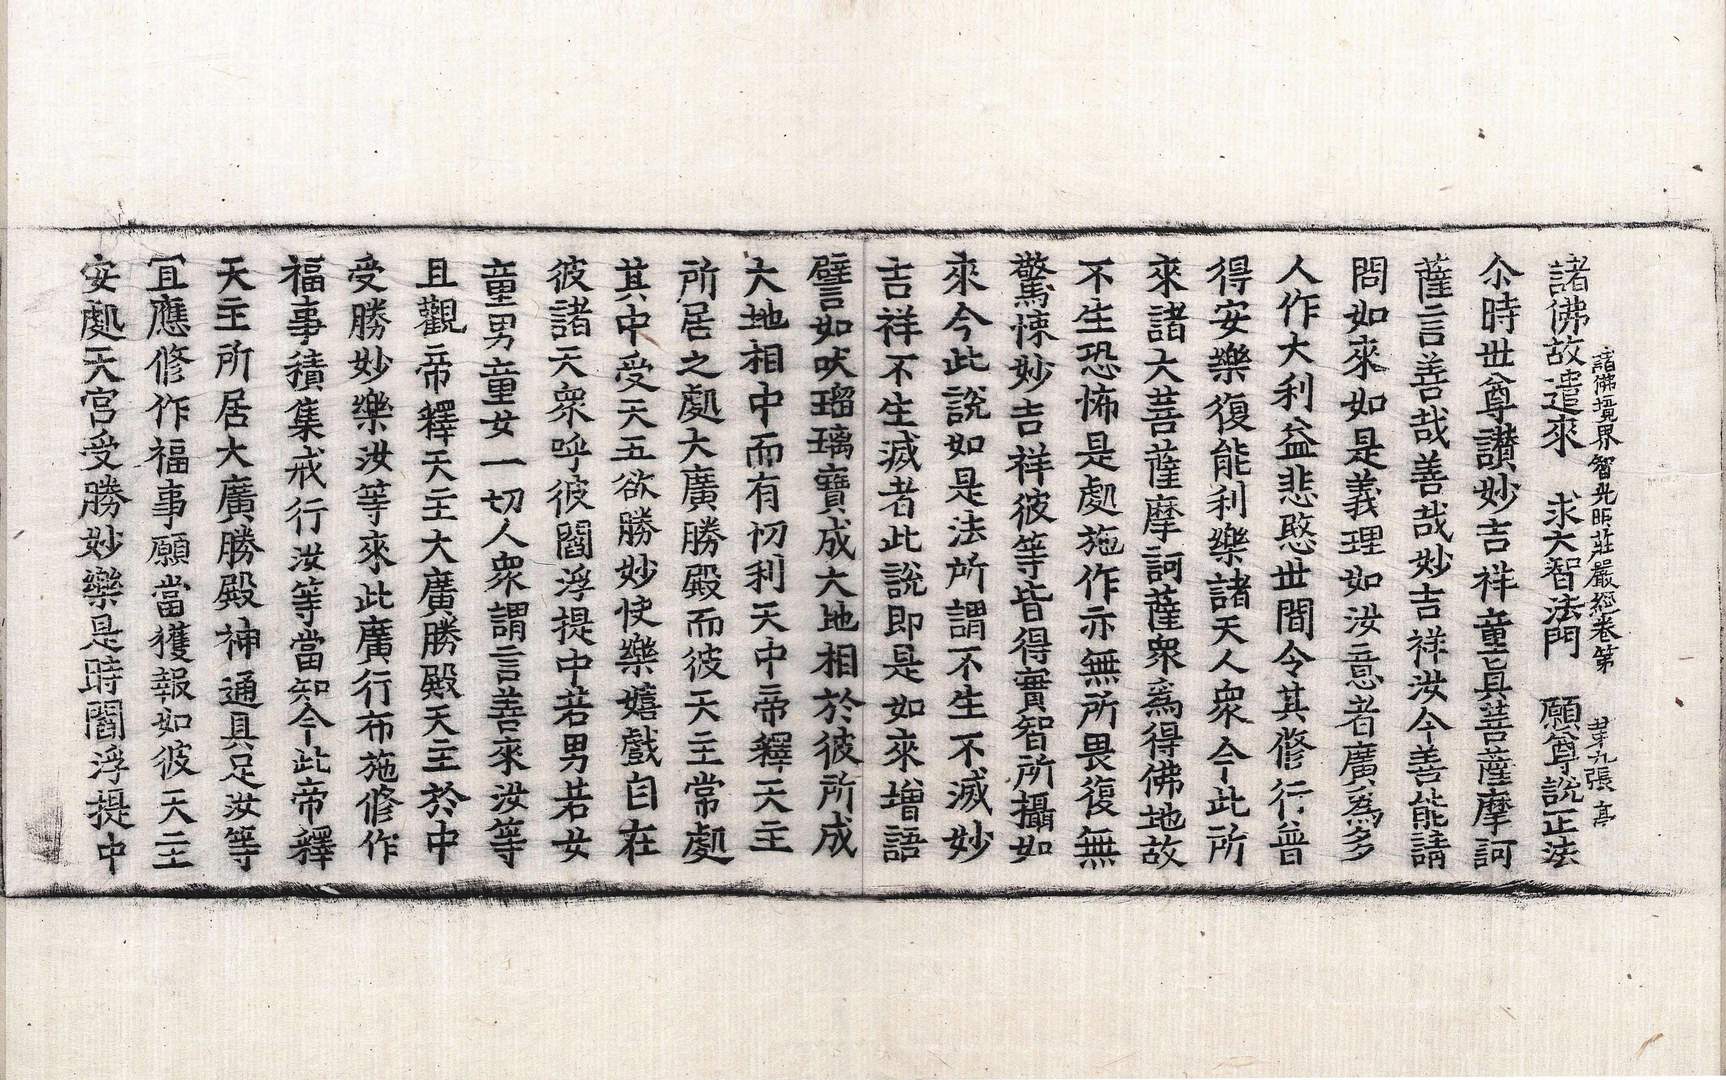 諸佛境界智光明莊嚴經卷第 第九張 亭
諸佛故遣來 求大智法門 願尊說正法
尒時世尊讃妙吉祥童眞菩薩摩訶
薩言善哉善哉妙吉祥汝今善能請
問如來如是義理如汝意者廣爲多
人作大利益悲愍世間令其修行普
得安樂復能利樂諸天人衆今此所
來諸大菩薩摩訶薩衆爲得佛地故
不生恐怖是處施作亦無所畏復無
驚悚妙吉祥彼等皆得實智所攝如
來今此說如是法所謂不生不滅妙
吉祥不生滅者此說即是如來增語
譬如吠瑠璃寶成大地相於彼所成
大地相中而有忉利天中帝釋天主
所居之處大廣勝殿而彼天主常處
其中受天五欲勝妙快樂嬉戲自在
彼諸天衆呼彼閻浮提中若男若女
童男童女一切人衆謂言善來汝等
且觀帝釋天主大廣勝殿天主於中
受勝妙樂汝等來此廣行布施修作
福事積集戒行汝等當知今此帝釋
天主所居大廣勝殿神通具足汝等
冝應修作福事願當獲報如彼天主
安處天宮受勝妙樂是時閻浮提中